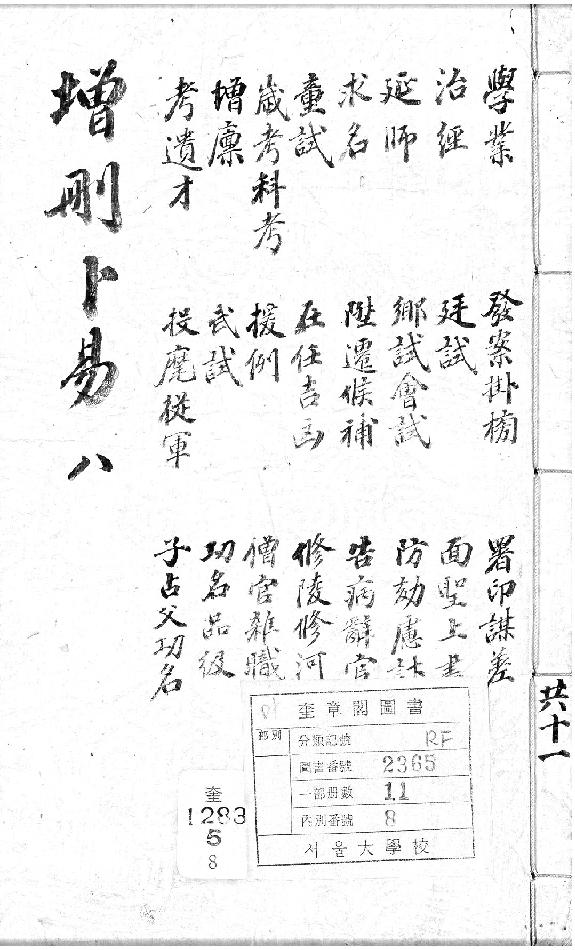 共十一
學業
治經
延師
求名
童試
歲考科考
增廩
考遺才
發案掛榜
廷試
鄕試會試
陞遷候補
在任吉凶
援例
武試
投麾從軍
署印謀差
面聖上書
防劾慮計
告病辭官
修陵修河
僧官雜職
功名品級
子占父功名
增刪卜易 八
奎章閣圖書
部別
分類記號 RF
圖書番號 2365
一部冊數 11
內別番號 8
서울大學校
奎
1283
5
8